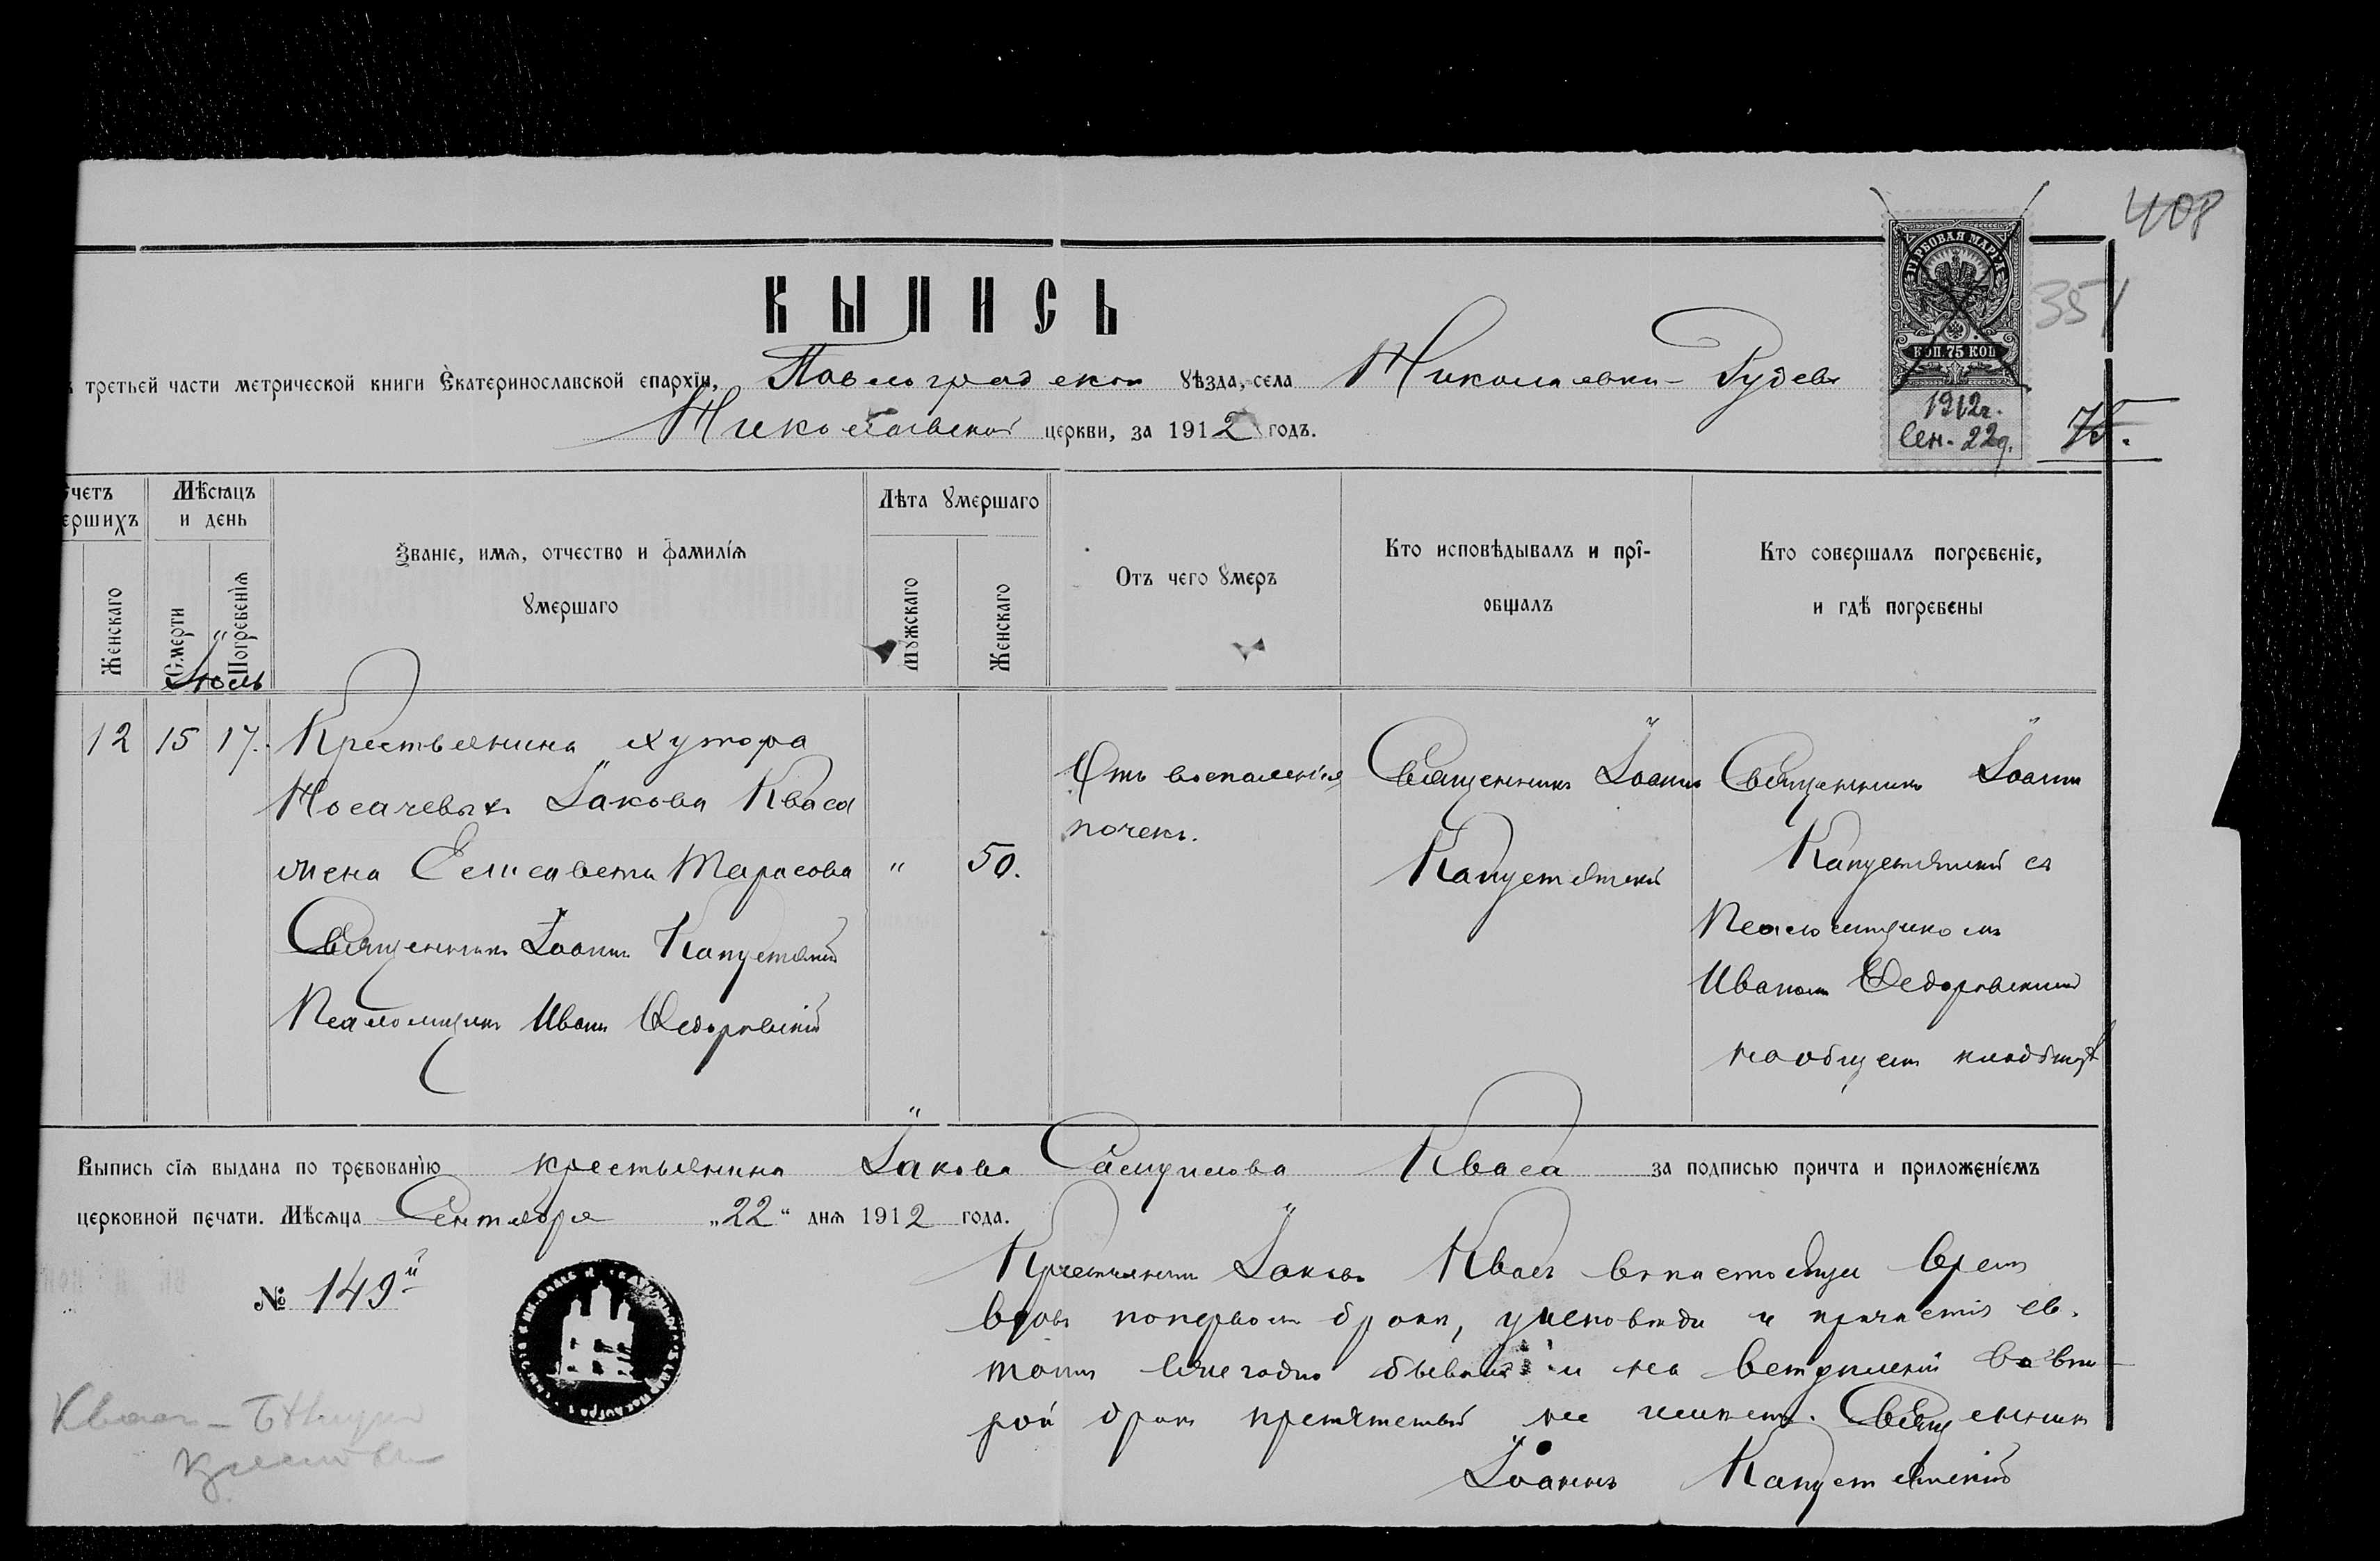 408
ВЫПИСЬ
ГЕРБОВАЯ МАРКА
КОП. 75 КОП.
1912 г.
Сен. 22 д.
351
третьей части метрической книги Екатеринославской епархіи, Павлоградскаго уѣзда, села Николаевки-Рудевой
Николаевской церкви, за 1912 годъ.
75.
счетъ умершихъ
Женскаго
Мѣсяцъ и день
Смерти
Погребенія
Званіе, имя, отчество и фамилія
умершаго
Лѣта умершаго
Мужскаго
Женскаго
Отъ чего умеръ
Кто исповѣдывалъ и прі-
общалъ
Кто совершалъ погребеніе,
и гдѣ погребены
Іюль
12 15 17. Крестьянина хутора
Носачевыхъ Іакова Кваса
жена Елисавета Тарасова " 50.
Священникъ Іоаннъ Капустянскій
Псаломщикъ Иванъ Федоровскій
Отъ воспаленія
почекъ.
Священникъ Іоаннъ
Капустянскій
Священникъ Іоаннъ
Капустянскій съ
Псаломщикомъ
Иваномъ Федоровскимъ
на общемъ кладбищѣ
Выпись сія выдана по требованію крестьянина Іакова Самуилова Кваса за подписью причта и приложеніемъ
церковной печати. Мѣсяца Сентября „22" дня 1912 года.
№ 149й
Крестьянинъ Іаковъ Квасъ въ настоящее время
вдовъ по первомъ бракѣ, у исповѣди и причастія св.
таинъ ежегодно бывалъ и на вступленіе во вто-
рой бракъ препятствій не имѣетъ. Священникъ
Іоаннъ Капустянскій